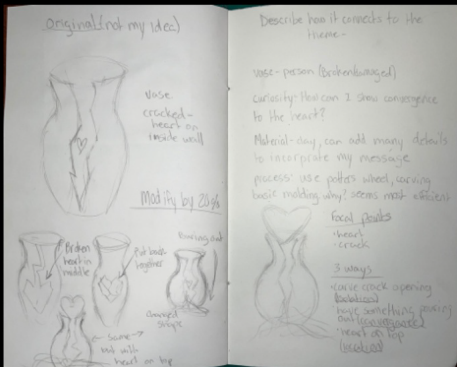 original (not my idea)
vase
cracked-
heart on
inside wall
Modify by 20%
Broken
heart in
middle
Put back
together
Pouring out
Changed
shape
same
but with
heart on top
Describe how it connects to the
theme-
vase- person (Broken/damaged)
curiosity- How can I show convergence
to the heart?
Material- clay, can add many details
to incorprate my message
process: use potters wheel, carving
basic molding why? seems most efficient
Focal points
heart
crack
3 ways
carve crack opening
(isolation)
have something pouring
out (convergence)
heart on top